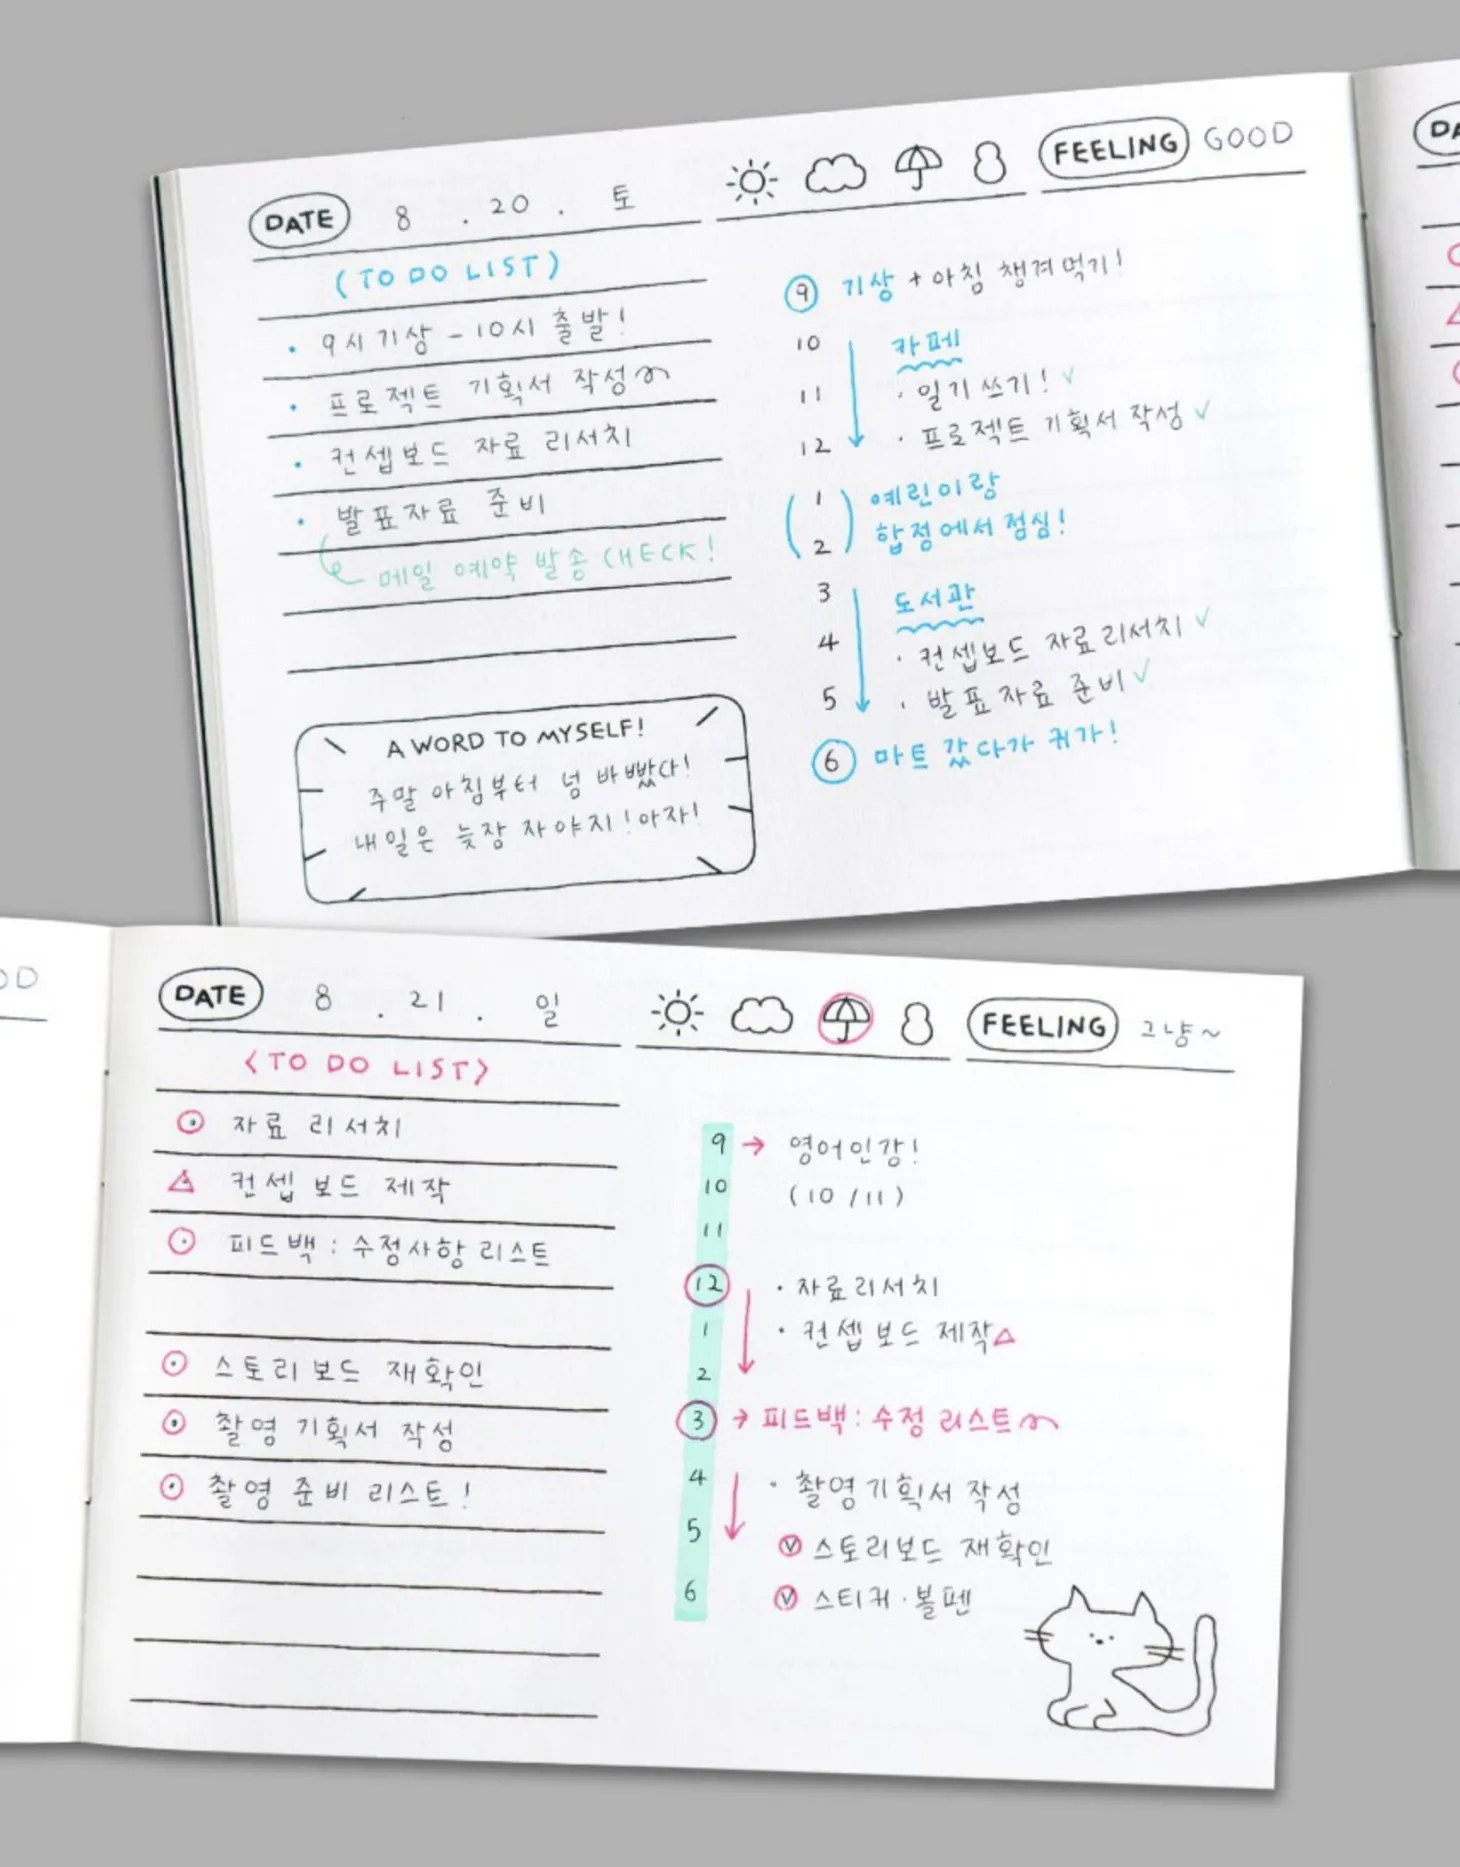 DATE 8 . 20 . 토
FEELING GOOD
(TO DO LIST)
· 9시기상 - 10시 출발!
· 프로젝트 기획서 작성
· 컨셉보드 자료 리서치
· 발표자료 준비
메일 예약 발송 CHECK!
A WORD TO MYSELF!
주말 아침부터 넘 바빴다!
내일은 늦장 자야지! 아자!
9 기상 + 아침 챙겨먹기!
10 카페
11 · 일기 쓰기! ✓
12 · 프로젝트 기획서 작성 ✓
1 예린이랑
2 합정에서 점심!
3 도서관
4 · 컨셉보드 자료리서치 ✓
5 · 발표자료 준비 ✓
6 마트 갔다가 귀가!
DA
OD
DATE 8 . 21 . 일
FEELING 그냥~
<TO DO LIST>
자료 리서치
컨셉보드 제작
피드백 : 수정사항 리스트
스토리보드 재확인
촬영 기획서 작성
촬영 준비 리스트!
9 → 영어인강!
10 (10/11)
11
12 · 자료리서치
1 · 컨셉보드 제작△
2
3 → 피드백 : 수정 리스트
4 · 촬영기획서 작성
5 ✓ 스토리보드 재확인
6 ✓ 스티커 · 볼펜